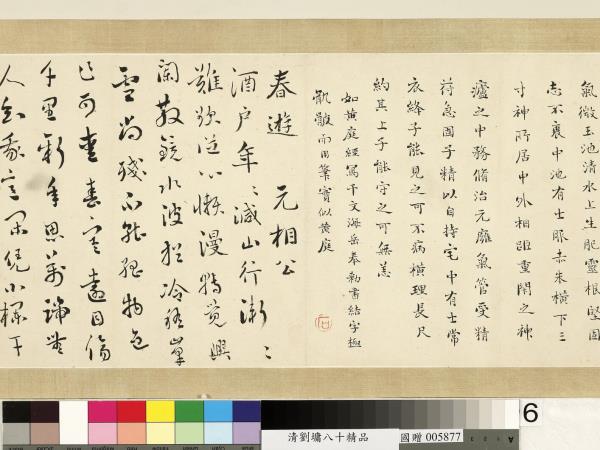 氣微玉池清水上生肥靈根堅固
志不衰中池有士服赤朱橫下三
寸神所居中外相距重閉之神
廬之中務脩治元廱氣管受精
符急固子精以自持宅中有士常
衣絳子能見之可不病橫理長尺
約其上子能守之可無恙
如黃庭經寫千文海岳奉勅書結字極
骩骳而用筆實似黃庭
石
春遊 元相公
酒戶年〻減山行漸〻
難欲從心懶漫轉覺興
闌散鏡水波猶冷稽峯
雪尚殘不能孤物色
乍可春寒遠目傷
千里新年思萬端無
人知我意閑凭小欄干
清劉墉八十精品
國贈 005877
6
A 1 2 3